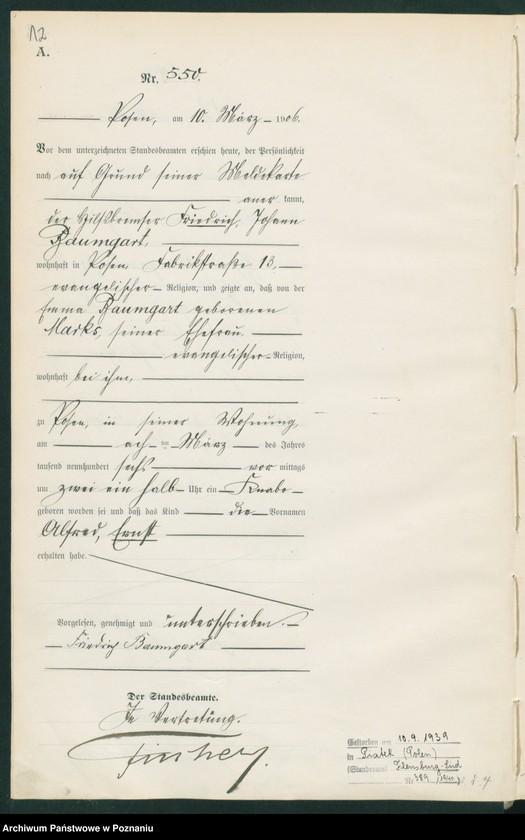 12
A.
Nr. 550.
Posen, am 10. März 1906.
Vor dem unterzeichneten Standesbeamten erschien heute, der Persönlichkeit
nach auf Grund seiner Meldekarte
aner kannt,
der Hilfsbremser Friedrich, Johann
Baumgart,
wohnhaft in Posen, Fabrikstraße 13,
evangelischer Religion, und zeigte an, daß von der
Emma Baumgart geborenen
Marks, seiner Ehefrau,
evangelischer Religion,
wohnhaft bei ihm,
zu Posen, in seiner Wohnung,
am ach ten März des Jahres
tausend neunhundert sechs vor mittags
um zwei ein halb Uhr ein Knabe
geboren worden sei und daß das Kind die Vornamen
Alfred, Ernst
erhalten habe.
Vorgelesen, genehmigt und unterschrieben.
Friedrich Baumgart
Der Standesbeamte.
In Vertretung.
Gestorben am 10.9.1939
in Piatek (Polen)
(Standesamt Flensburg-Süd
Nr. 389
Archiwum Państwowe w Poznaniu